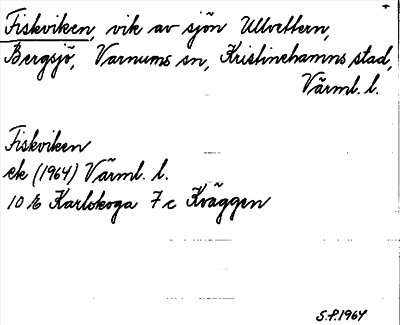 Fiskviken, vik av sjön Ullvettern,
Bergsjö, Varnums sn, Kristinehamns stad,
Värml. l.
Fiskviken
ek (1964) Värml. l.
10 E Karlskoga 7 c Kväggen
S.P. 1964